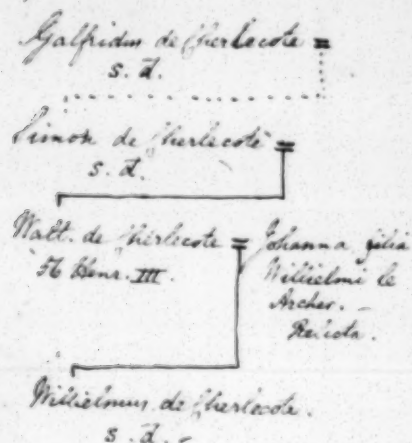 Galfridus de Cherlecote =
s. d.
Simon de Cherlecote =
s. d.
Walt. de Cherlecote = Johanna filia
56 Henr. III. Willielmi le
Archer. -
Relicta.
Willielmus de Cherlecote.
s. d. -